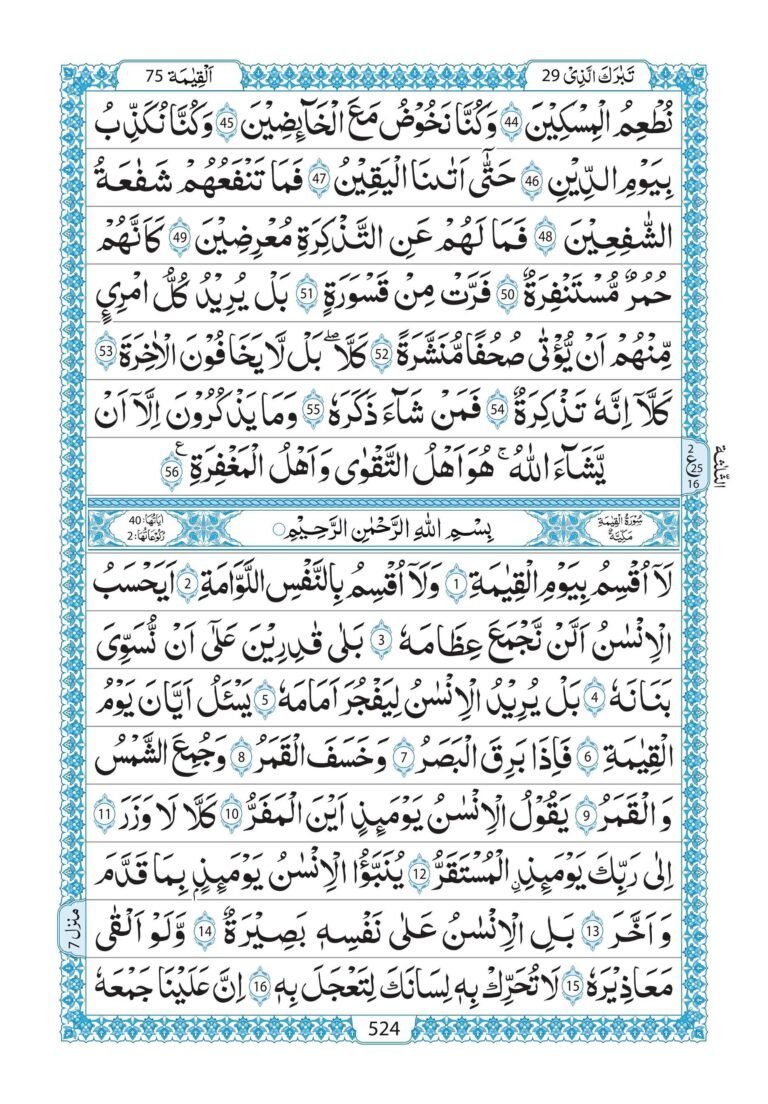 تَبٰرَكَ الَّذِیْ 29
اَلْقِیٰمَة 75
نُطْعِمُ الْمِسْكِیْنَ 44 وَكُنَّا نَخُوْضُ مَعَ الْخَآئِضِیْنَ 45 وَكُنَّا نُكَذِّبُ
بِیَوْمِ الدِّیْنِ 46 حَتّٰۤی اَتٰىنَا الْیَقِیْنُ 47 فَمَا تَنْفَعُهُمْ شَفٰعَةُ
الشّٰفِعِیْنَ 48 فَمَا لَهُمْ عَنِ التَّذْكِرَةِ مُعْرِضِیْنَ 49 كَاَنَّهُمْ
حُمُرٌ مُّسْتَنْفِرَةٌ 50 فَرَّتْ مِنْ قَسْوَرَةٍ 51 بَلْ یُرِیْدُ كُلُّ امْرِئٍ
مِّنْهُمْ اَنْ یُّؤْتٰی صُحُفًا مُّنَشَّرَةً 52 كَلَّا ؕ بَلْ لَّا یَخَافُوْنَ الْاٰخِرَةَ 53
كَلَّاۤ اِنَّهٗ تَذْكِرَةٌ 54 فَمَنْ شَآءَ ذَكَرَهٗ 55 وَمَا یَذْكُرُوْنَ اِلَّاۤ اَنْ
یَّشَآءَ اللّٰهُ ؕ هُوَ اَهْلُ التَّقْوٰی وَاَهْلُ الْمَغْفِرَةِ 56 ع
2
ع 25
16
الثلثة
سُوْرَةُ الْقِیٰمَةِ مَكِّیَّةٌ
بِسْمِ اللّٰهِ الرَّحْمٰنِ الرَّحِیْمِ
اٰیَاتُهَا: 40
رُكُوْعَاتُهَا: 2
لَاۤ اُقْسِمُ بِیَوْمِ الْقِیٰمَةِ 1 وَلَاۤ اُقْسِمُ بِالنَّفْسِ اللَّوَّامَةِ 2 اَیَحْسَبُ
الْاِنْسٰنُ اَلَّنْ نَّجْمَعَ عِظَامَهٗ 3 بَلٰی قٰدِرِیْنَ عَلٰۤی اَنْ نُّسَوِّیَ
بَنَانَهٗ 4 بَلْ یُرِیْدُ الْاِنْسٰنُ لِیَفْجُرَ اَمَامَهٗ 5 یَسْـَٔلُ اَیَّانَ یَوْمُ
الْقِیٰمَةِ 6 فَاِذَا بَرِقَ الْبَصَرُ 7 وَخَسَفَ الْقَمَرُ 8 وَجُمِعَ الشَّمْسُ
وَالْقَمَرُ 9 یَقُوْلُ الْاِنْسٰنُ یَوْمَئِذٍ اَیْنَ الْمَفَرُّ 10 كَلَّا لَا وَزَرَ 11
اِلٰی رَبِّكَ یَوْمَئِذِ ِ۟الْمُسْتَقَرُّ 12 یُنَبَّؤُا الْاِنْسٰنُ یَوْمَئِذٍۭ بِمَا قَدَّمَ
وَاَخَّرَ 13 بَلِ الْاِنْسٰنُ عَلٰی نَفْسِهٖ بَصِیْرَةٌ 14 وَّلَوْ اَلْقٰی
منزل 7
مَعَاذِیْرَهٗ 15 لَا تُحَرِّكْ بِهٖ لِسَانَكَ لِتَعْجَلَ بِهٖ 16 اِنَّ عَلَیْنَا جَمْعَهٗ
524